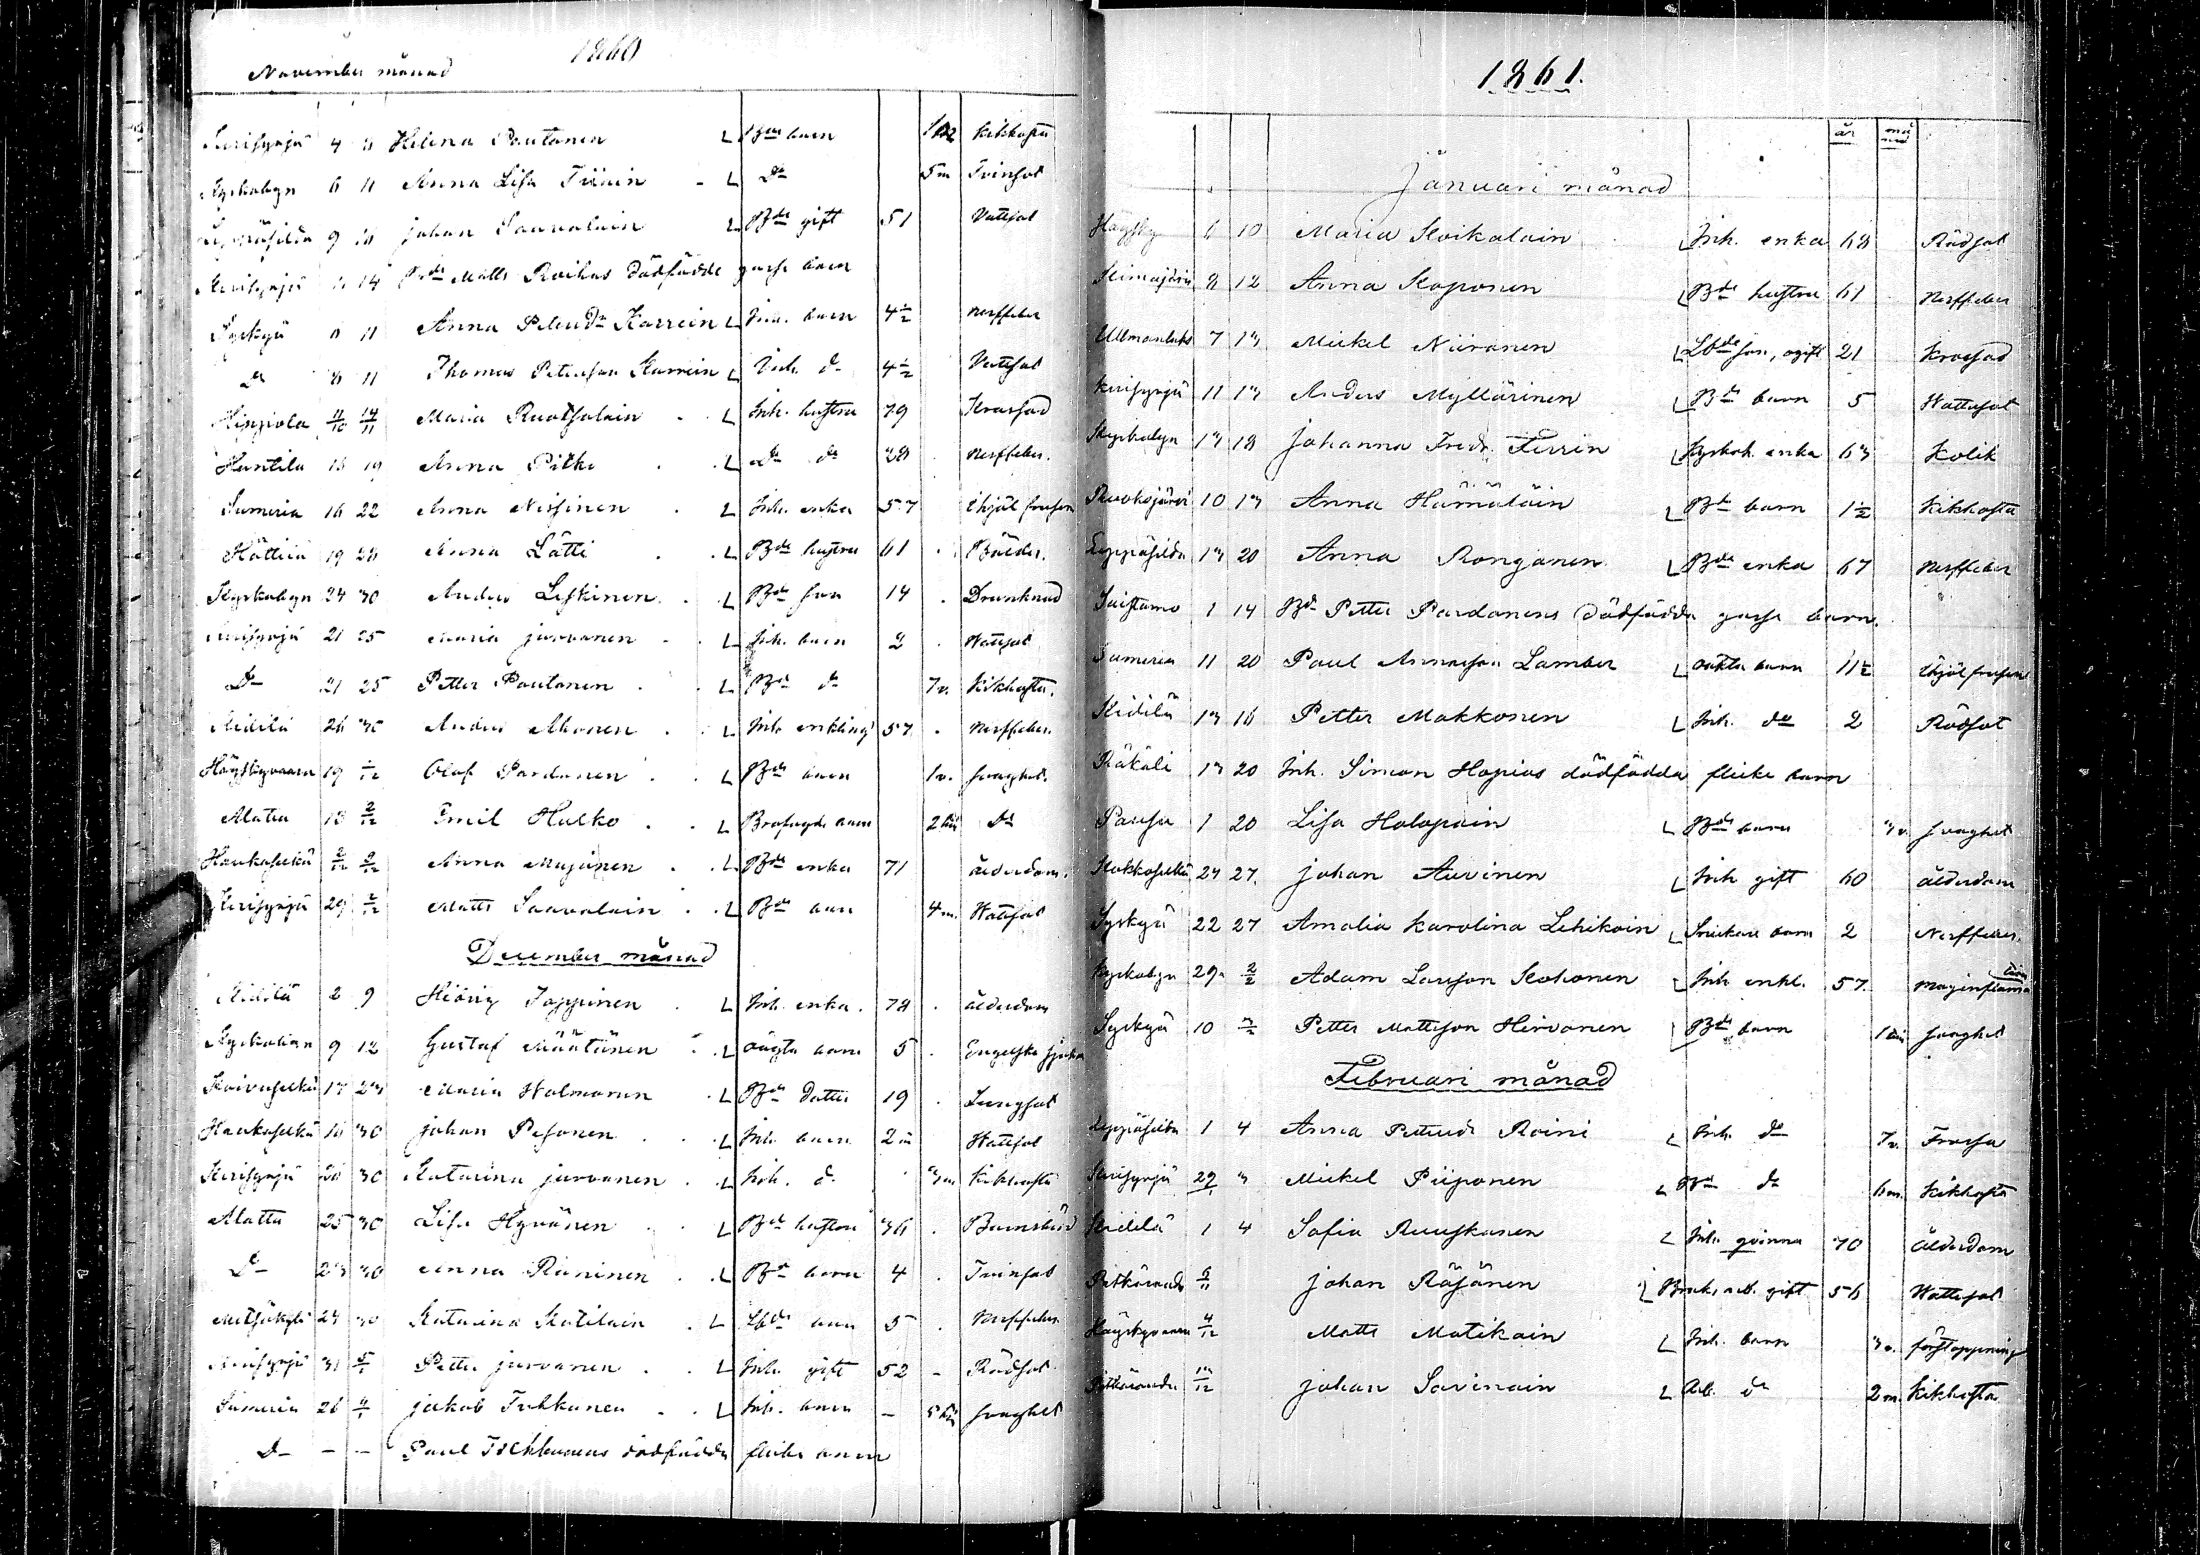 1860
November månad
Kerisyrjä 4 11 Helena Poutanen L Bde barn Kikhosta
Kyrkobyn 6 11 Anna Lisa L Do 5 m Tvinsot
Leppäsilda 9 Johan Saavalain L Bde gift 51 Vattsot
Kerisyrjä 11 14 Bde Matts Roihas dödfödde gosse barn
Syskyä 11 Anna Petersdr Karrein L Inh. barn 4½ Nerffeber
Do 8 11 Thomas Peterson Karrein L Inh. do 4½ Vattsot
Hippola 11/10 14/11 Maria Ruotsalain L Inh. hustru 79 Krassad
Huntila 13 19 Anna Pitko L Do do 38 Nerffeber.
Sumeria 16 22 Anna Nissinen L Inh. enka 57 ihjäl frusen
Hättiä 19 28 Anna Lätti L Bde hustru 61 Bölder.
Kyrkobyn 24 30 Anders Leskinen L Bde son 14 Drunknad
Kerisyrjä 21 25 Maria Jurvanen L Inh. barn 2 Wattsot
Do 21 25 Petter Poutanen L Bde do 7v. Kikhosta.
Kidilä 26 30 Anders Ahonen L Inh. enkling 57 Nerffeber.
Häyskyvaara 19 Olof Pardanen L Bde barn 1v. svaghet.
Alatu 18 2/12 Emil Hulko L barn Do
Haukaselkä 2/12 9/12 Anna Mujunen L Bde enka 71 ålderdom.
Kerisyrjä 29 2/12 Matts Saavalain L Bde barn 4 m. Wattsot
December månad
Kidilä 2 9 Toppinen L Inh. enka 78 ålderdom
Kyrkobyn 9 12 Gustaf Määttänen L oägta barn 5 Engelska sjukan
Koivuselkä 17 23 Maria Walmanen L Bde dotter 19 Lungsot
Haukaselkä 16 30 Johan Pesonen L Inh. barn 2 Wattsot
Kerisyrjä 30 Katarina Jurvanen L Inh. do 3m Kikhosta
Alattu 25 30 Lisa Hyvönen L Bde hustru 36 Barnsbörd
Do 23 30 Anna Räninen L Bde barn 4 Tvinsot
Metsäkylä 24 30 Katarina Kotilain L Lbde barn 5 Nerffeber
Kerisyrjä 31 Petter Jurvanen L Inh. gift 52 Rödsot
Sumeria 26 Jakob Tuhkunen L Inh. barn – svaghet
Do – – Paul dödfödda flicke barn
1861.
år månad
Januari månad
6 10 Maria Koikalain L Inh. enka 68 Rödsot
8 12 Anna Koponen L Bde hustru 61 Nerffeber
Ullmanlaks 7 13 Mickel Niiranen L Lbde son, ogift 21 Krossad
Kerisyrjä 11 13 Anders Myllärinen L Bde barn 5 Wattusot
Kyrkobyn 13 18 Johanna Fredr. L Kyrkoh. enka 63 Kolik
Ruoksjärvi 10 13 Anna Hämäläin L Bde barn 1½ Kikhosta
Leppäsilda 13 20 Anna Ronganen L Bde enka 67 Nerffeber
Suistamo 1 14 Bde Petter Pardanens dödfödda gosse barn.
Sumeria 11 20 Paul Annasson Lamber L oäkta barn 11½ ihjäl frusen
Kidilä 13 16 Petter Makkonen L Inh. do 2 Rödsot
Räkäli 13 20 Inh. Simon Hopias dödfödda flicke barn
Pausu 1 20 Lisa Holopain L Bde barn 3v. svaghet
Kokkoselkä 24 27. Johan Auvinen L Inh. gift 60 ålderdom
Syskyä 22 27 Amalia Karolina Lehikoin L Snickare barn 2 Nerffeber.
Kyrkobyn 29 2/2 Adam Larsson Kohonen L Inh. enkl. 57 maginflama tion
Syskyä 10 3/2 Petter Mattsson Hirvonen L Bde barn svaghet
Februari månad
Leppäsilta 1 4 Anna Petersdr Roini L Inh. do 7v. Frossa
Kerisyrjä 29/1 3 Mickel Piiponen L Bde do 6m. Kikhosta
Kidilä 1 4 Sofia Ruuskanen L Inh. qvinna 70 ålderdom
Pitkäranda 6/11 Johan Räsänen L Bruks arb. gift 56 Wattusot
Häyskyvaara 4/12 Matts Matikain L Inh. barn 3v. förstoppning
Pitkäranda 13/12 Johan Savinain L Arb. do 2 m. Kikhosta